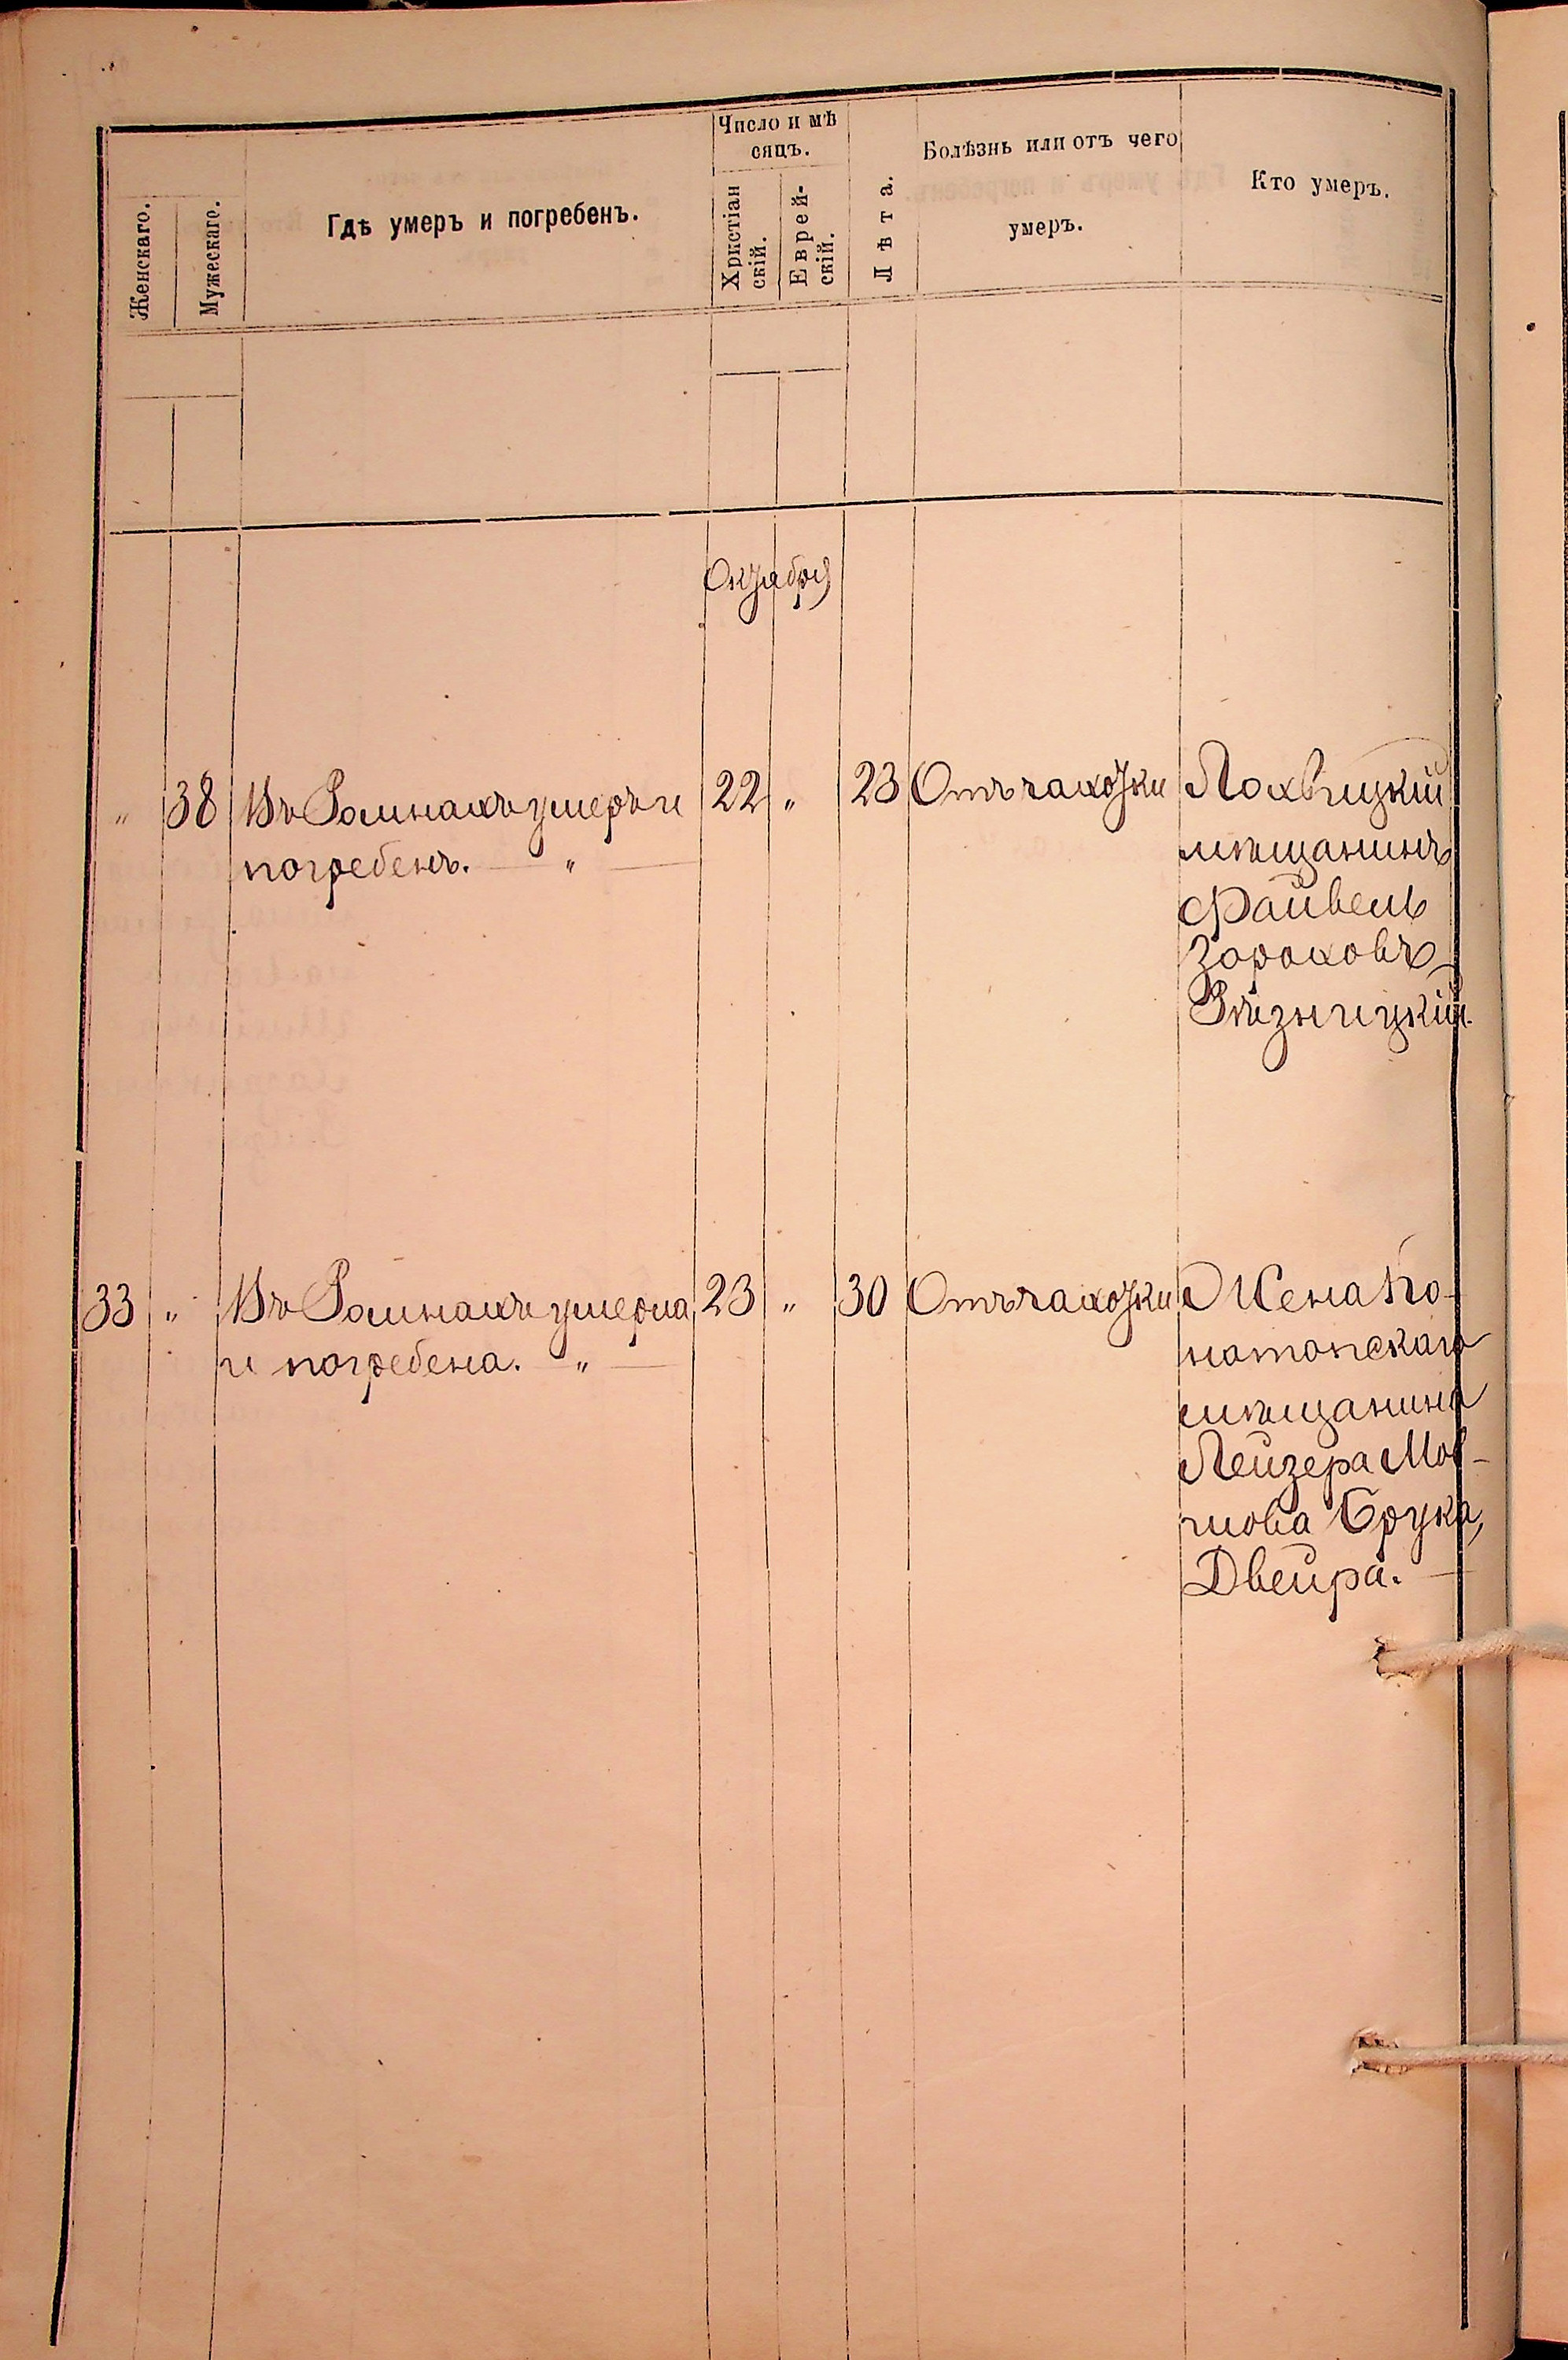 Женскаго.
Мужескаго.
Гдѣ умеръ и погребенъ.
Число и мѣ
сяцъ.
Христіан
скій.
Еврей-
скій.
Лѣта.
Болѣзнь или отъ чего
умеръ.
Кто умеръ.
Октября
" 38 Въ Ромнахъ умеръ и 22 " 23 Отъ чахотки Лохвицкій
погребенъ. — " —
мѣщанинъ
Файвель
Зороховъ
33 " Въ Ромнахъ умерла 23 " 30 Отъ чахотки Жена Ко-
и погребена. " —
нотопскаго
мѣщанина
Лейзера Мов-
шова Брука,
Двейра. —